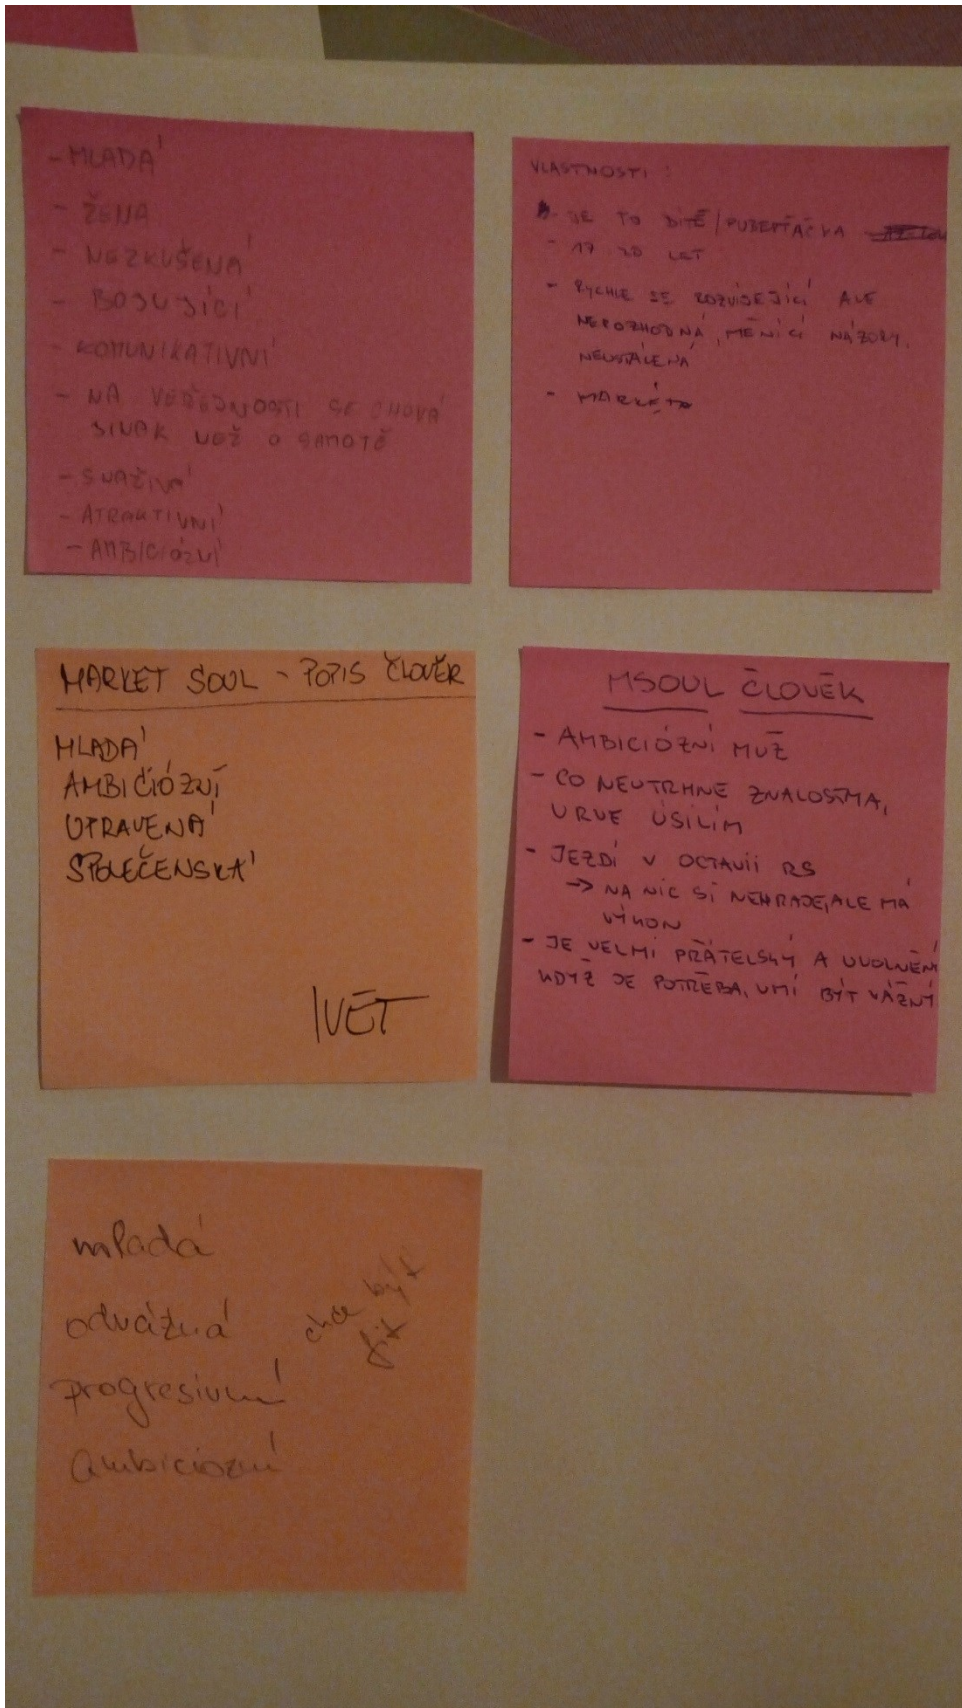 - MLADÁ
- ŽENA
- NEZKUŠENÁ
- BOJUJÍCÍ
- KOMUNIKATIVNÍ
- NA VEŘEJNOSTI SE CHOVÁ
JINAK NEŽ O SAMOTĚ
- SNAŽIVÁ
- ATRAKTIVNÍ
- AMBICIÓZNÍ
VLASTNOSTI:
- JE TO DÍTĚ/PUBERŤAČKA
- 17 20 LET
- RYCHLE SE ROZVIJEJÍCÍ ALE
NEROZHODNÁ, MĚNÍCÍ NÁZORY,
NEUSTÁLENÁ
- MARKÉTA
MARKET SOUL - POPIS ČLOVĚK
MLADÁ
AMBICIÓZNÍ
UPRAVENÁ
SPOLEČENSKÁ
IVET
MSOUL ČLOVĚK
- AMBICIÓZNÍ MUŽ
- CO NEUTRHNE ZNALOSTMA,
URVE ÚSILÍM
- JEZDÍ V OCTAVII RS
-> NA NIC SI NEHRAJE, ALE MÁ
VÝKON
- JE VELMI PŘÁTELSKÝ A UVOLNĚNÝ
KDYŽ JE POTŘEBA, UMÍ BÝT VÁŽNÝ
mladá
odvážná
progresivní
ambiciózní
chce být
fit